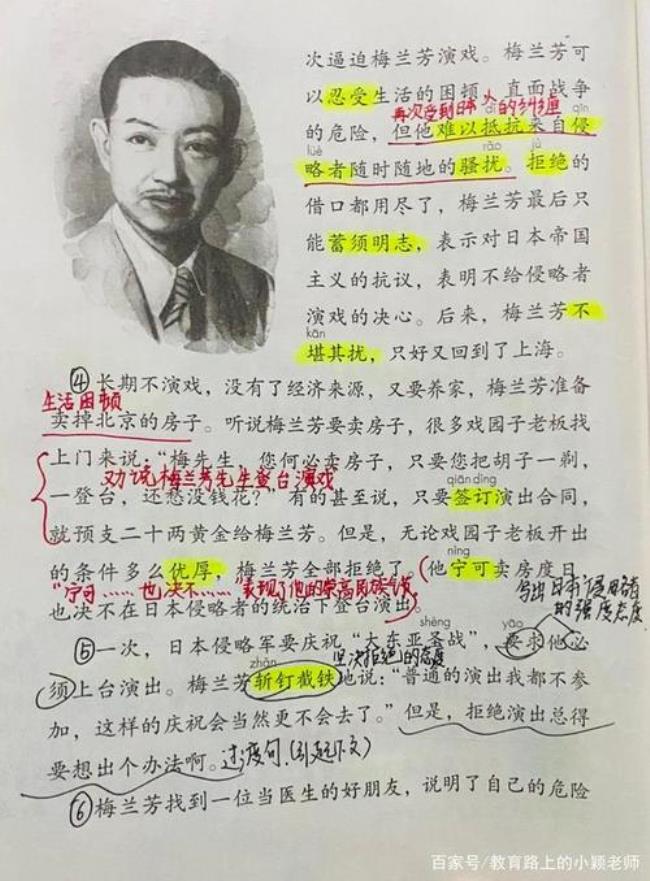 次逼迫梅兰芳演戏。梅兰芳可
以忍受生活的困顿，直面战争
再次受到日本人的纠缠
qīn
的危险，但他难以抵抗来自侵
lüè rǎo jù
略者随时随地的骚扰。拒绝的
借口都用尽了，梅兰芳最后只
能蓄须明志，表示对日本帝国
主义的抗议，表明不给侵略者
演戏的决心。后来，梅兰芳不
kān
堪其扰，只好又回到了上海。
④长期不演戏，没有了经济来源，又要养家，梅兰芳准备
生活困顿
卖掉北京的房子。听说梅兰芳要卖房子，很多戏园子老板找
上门来说：“梅先生，您何必卖房子，只要您把胡子一剃，
劝说梅兰芳先生登台演戏
一登台，还愁没钱花？”有的甚至说，只要签订演出合同，
qiān dìng
就预支二十两黄金给梅兰芳。但是，无论戏园子老板开出
的条件多么优厚，梅兰芳全部拒绝了。（他宁可卖房度日
nìng
“宁可……也决不……”表现了他的崇高民族气节。
也决不在日本侵略者的统治下登台演出）。
写出日本侵略者
的强度态度
shèng yāo
⑤一次，日本侵略军要庆祝“大东亚圣战”，要求他必
坚决拒绝的态度
zhǎn
须上台演出。梅兰芳斩钉截铁地说：“普通的演出我都不参
加，这样的庆祝会当然更不会去了。”但是，拒绝演出总得
要想出个办法啊。过渡句（引起下文）
⑥梅兰芳找到一位当医生的好朋友，说明了自己的危险
百家号/教育路上的小颖老师